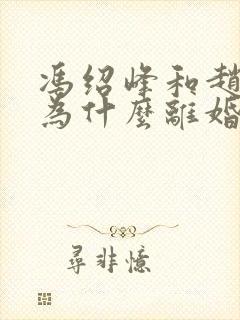 馮绍峰和趙
為什麼離婚
尋非憶